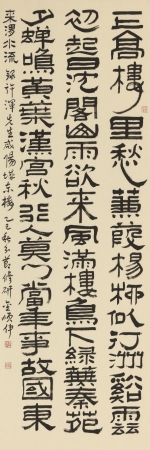 一上高樓万里愁蒹葭楊柳似汀洲谿雲
初起日沈閣山雨欲來風滿樓鳥下綠蕪秦苑
夕蟬鳴黃葉漢宮秋行人莫問當年事故國東
來渭水流 錄許渾先生咸陽城東樓 乙巳秋 修研 金順伊